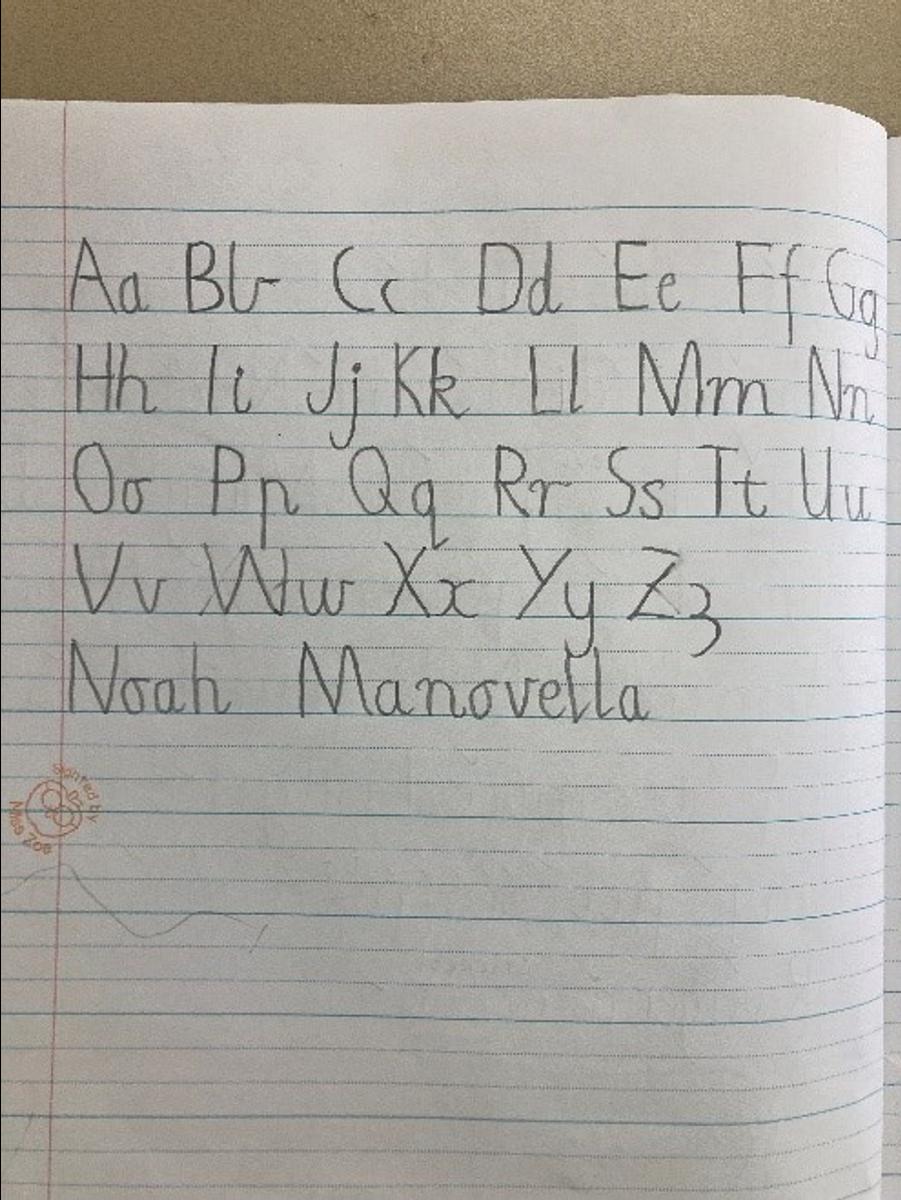 Aa Bb Cc Dd Ee Ff Gg
Hh Ii Jj Kk Ll Mm Nn
Oo Pp Qq Rr Ss Tt Uu
Vv Ww Xx Yy Zz
Noah Manovella
Sighted by
Miss Zoe